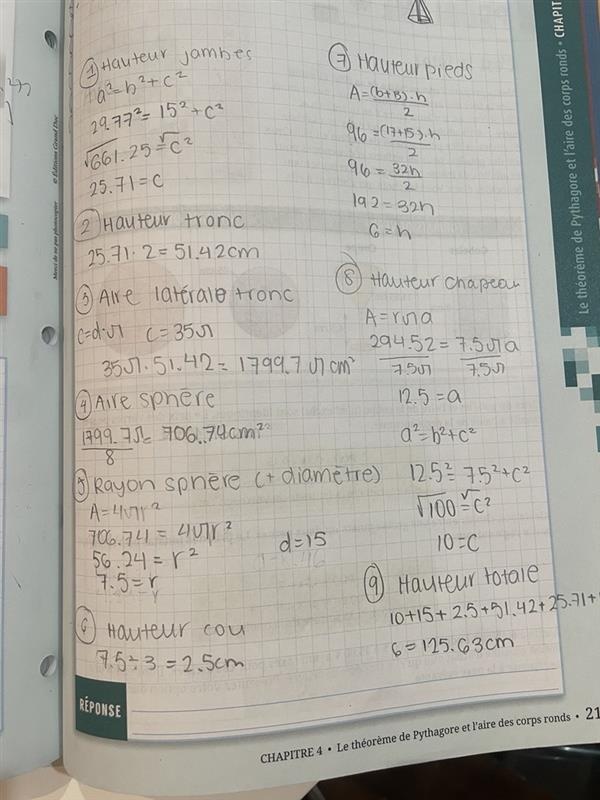 ① Hauteur jambes
a²=b²+c²
29.77²=15²+c²
√661.25=√c²
25.71=c
② Hauteur tronc
25.71·2=51.42cm
③ Aire latérale tronc
C=d·π C=35π
35π·51.42=1799.7πcm²
④ Aire sphère
1799.7π = 706.74cm²
8
⑤ Rayon sphère (+ diamètre)
A=4πr²
706.741=4πr²
56.24=r²
7.5=r
d=15
⑥ Hauteur cou
7.5÷3=2.5cm
⑦ Hauteur pieds
A=(b+B)·h
2
96=(17+15)·h
2
96=32h
2
192=32h
6=h
⑧ Hauteur chapeau
A=rπa
294.52=7.5πa
7.5π 7.5π
12.5=a
a²=b²+c²
12.5²=7.5²+c²
√100=√c²
10=c
⑨ Hauteur totale
10+15+2.5+51.42+25.71+
6=125.63cm
RÉPONSE
CHAPITRE 4 • Le théorème de Pythagore et l'aire des corps ronds • 21
Le théorème de Pythagore et l'aire des corps ronds • CHAPIT